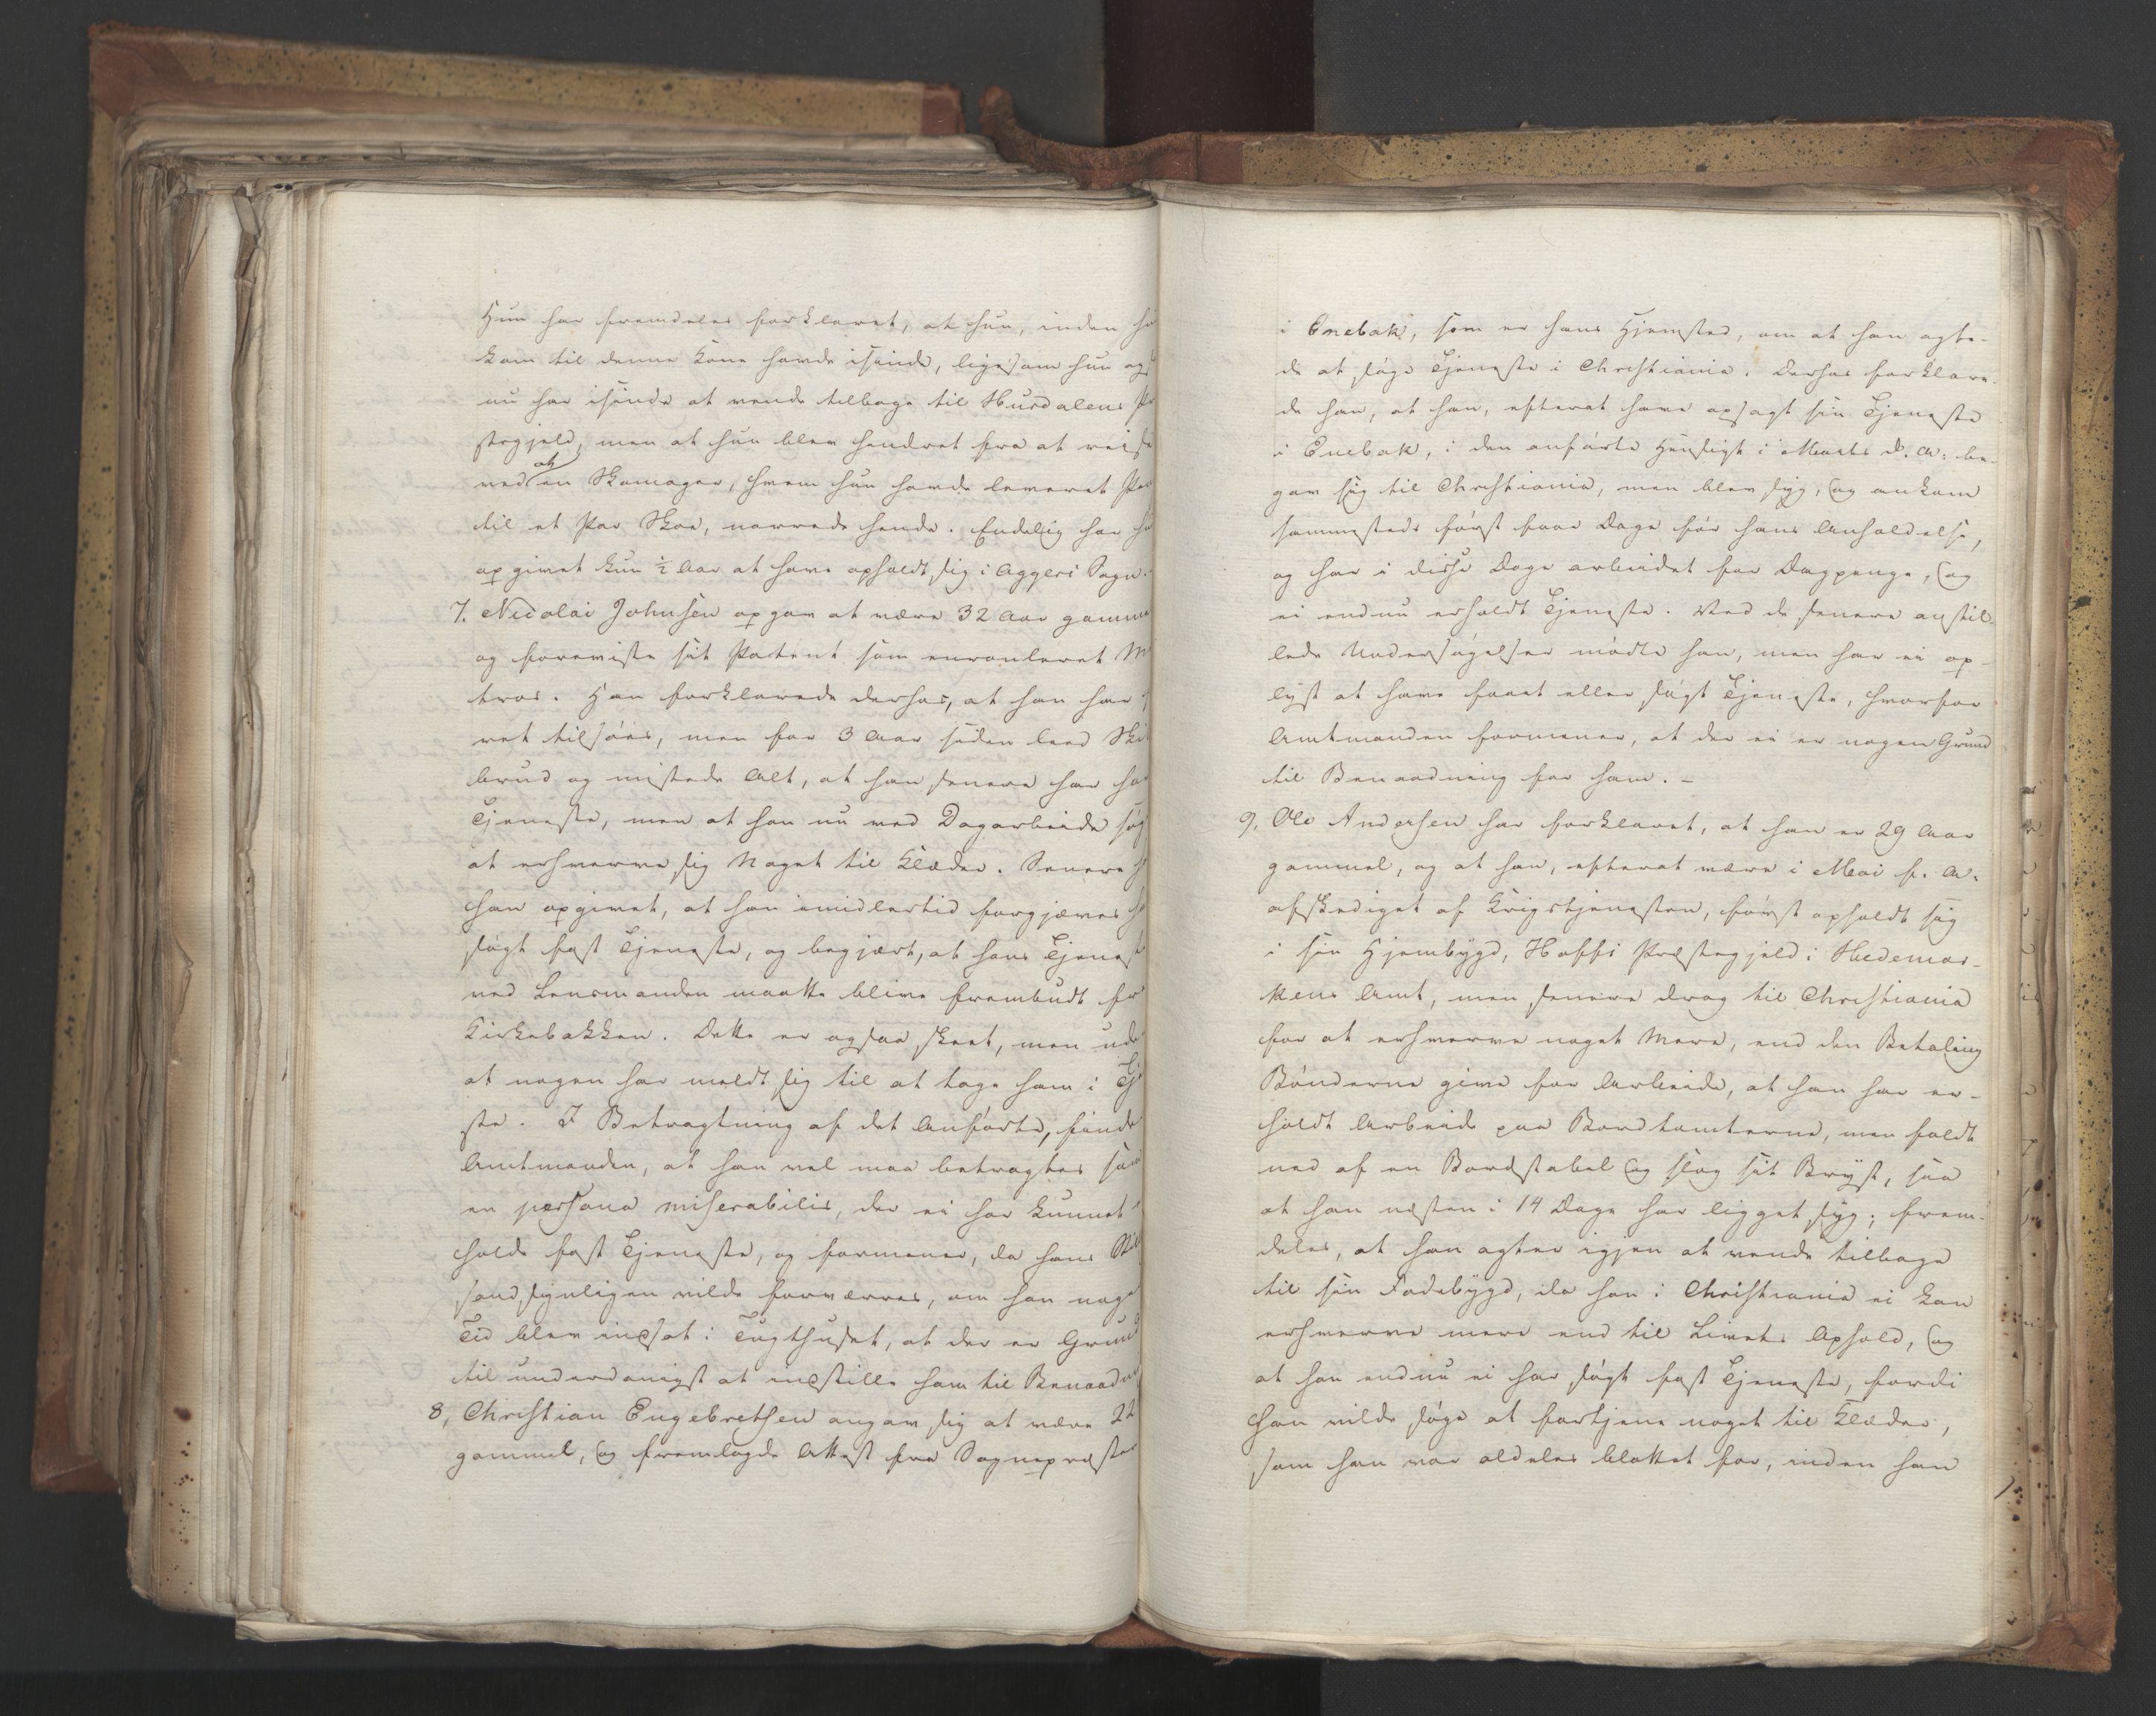 Hun har fremdeles forklaret, at hun, inden h
kom til denne Kone havde isinde, ligesom hun og
nu har isinde at vende tilbage til Hurdalens Præ
stegjeld, men at hun blev hindret fra at reise
ved at en Skomager, hvem hun havde leveret Pen
til et Par Skoe, narrede hende. Endelig har h
opgivet kun ½ Aar at have opholdt sig i Aggers Sogn.
7. Nicolai Johnsen opgav at være 32 Aar gamme
og foreviste sit Patent som enrouleret M
tros. Han forklarede derhos, at han har
ret tilsøes, men for 3 Aar siden leed Ski
brud og mistede Alt, at han senere har ha
Tjeneste, men at han nu ved Dagarbeide søg
at erhverve sig Noget til Klæder. Senere h
han opgivet, at han imidlertid forgjæves ha
søgt fast Tjeneste, og begjært, at hans Tjenest
ved Lensmanden maatte blive frembudt fr
Kirkebakken. Dette er ogsaa skeet, men ude
at nogen har meldt sig til at tage ham i Tje
ste. I Betragtning af det Anførte, finde
Amtmanden, at han vel maa betragtes som
en persona miserabilis, der ei har kunnet
holde fast Tjeneste, og formener, da hans Stil
sandsynligen vilde forværres, om han noge
Tid blev indsat i Tugthuset, at der er Grund
til underdanigst at indstille ham til Benaadni
8, Christian Engebrethsen angav sig at være 22
gammel, og fremlagde Attest fra Sognepræste
i Enebak, som er hans Hjemsted, om at han agte-
de at søge Tjeneste i Christiania. Derhos forklare-
de han, at han, efterat have opsagt sin Tjeneste
i Enebak, i den anførte Hensigt i Marts d. A. be-
gav sig til Christiania, men blev syg, og ankom
sammesteds først faae Dage før hans Anholdelse,
og har i disse Dage arbeidet for Dagpenge, og
ei endnu erholdt Tjeneste. Ved de senere anstil-
lede Undersøgelser mødte han, men har ei op-
lyst at have faaet eller søgt Tjeneste, hvorfor
Amtmanden formener, at der ei er nogen Grund
til Benaadning for ham. -
9, Ole Andersen har forklaret, at han er 29 Aar
gammel, og at han, efterat være i Mai f. A.
afskediget af Krigstjenesten, først opholdt sig
i sin Hjembygd, Hoffs Præstegjeld i Hedemar-
kens Amt, men senere drog til Christiania
for at erhverve noget Mere, end den Betaling
Bønderne give for Arbeide, at han har er-
holdt Arbeide paa Bordtomterne, men faldt
ned af en Bordstabel og slog sit Bryst, saa
at han næsten i 14 Dage har ligget syg; frem-
deles, at han agter igjen at vende tilbage
til sin Fødebygd, da han i Christiania ei kan
erhverve mere end til Livets Ophold, og
at han endnu ei har søgt fast Tjeneste, fordi
han vilde søge at fortjene noget til Klæder,
som han var aldeles blottet for, inden han